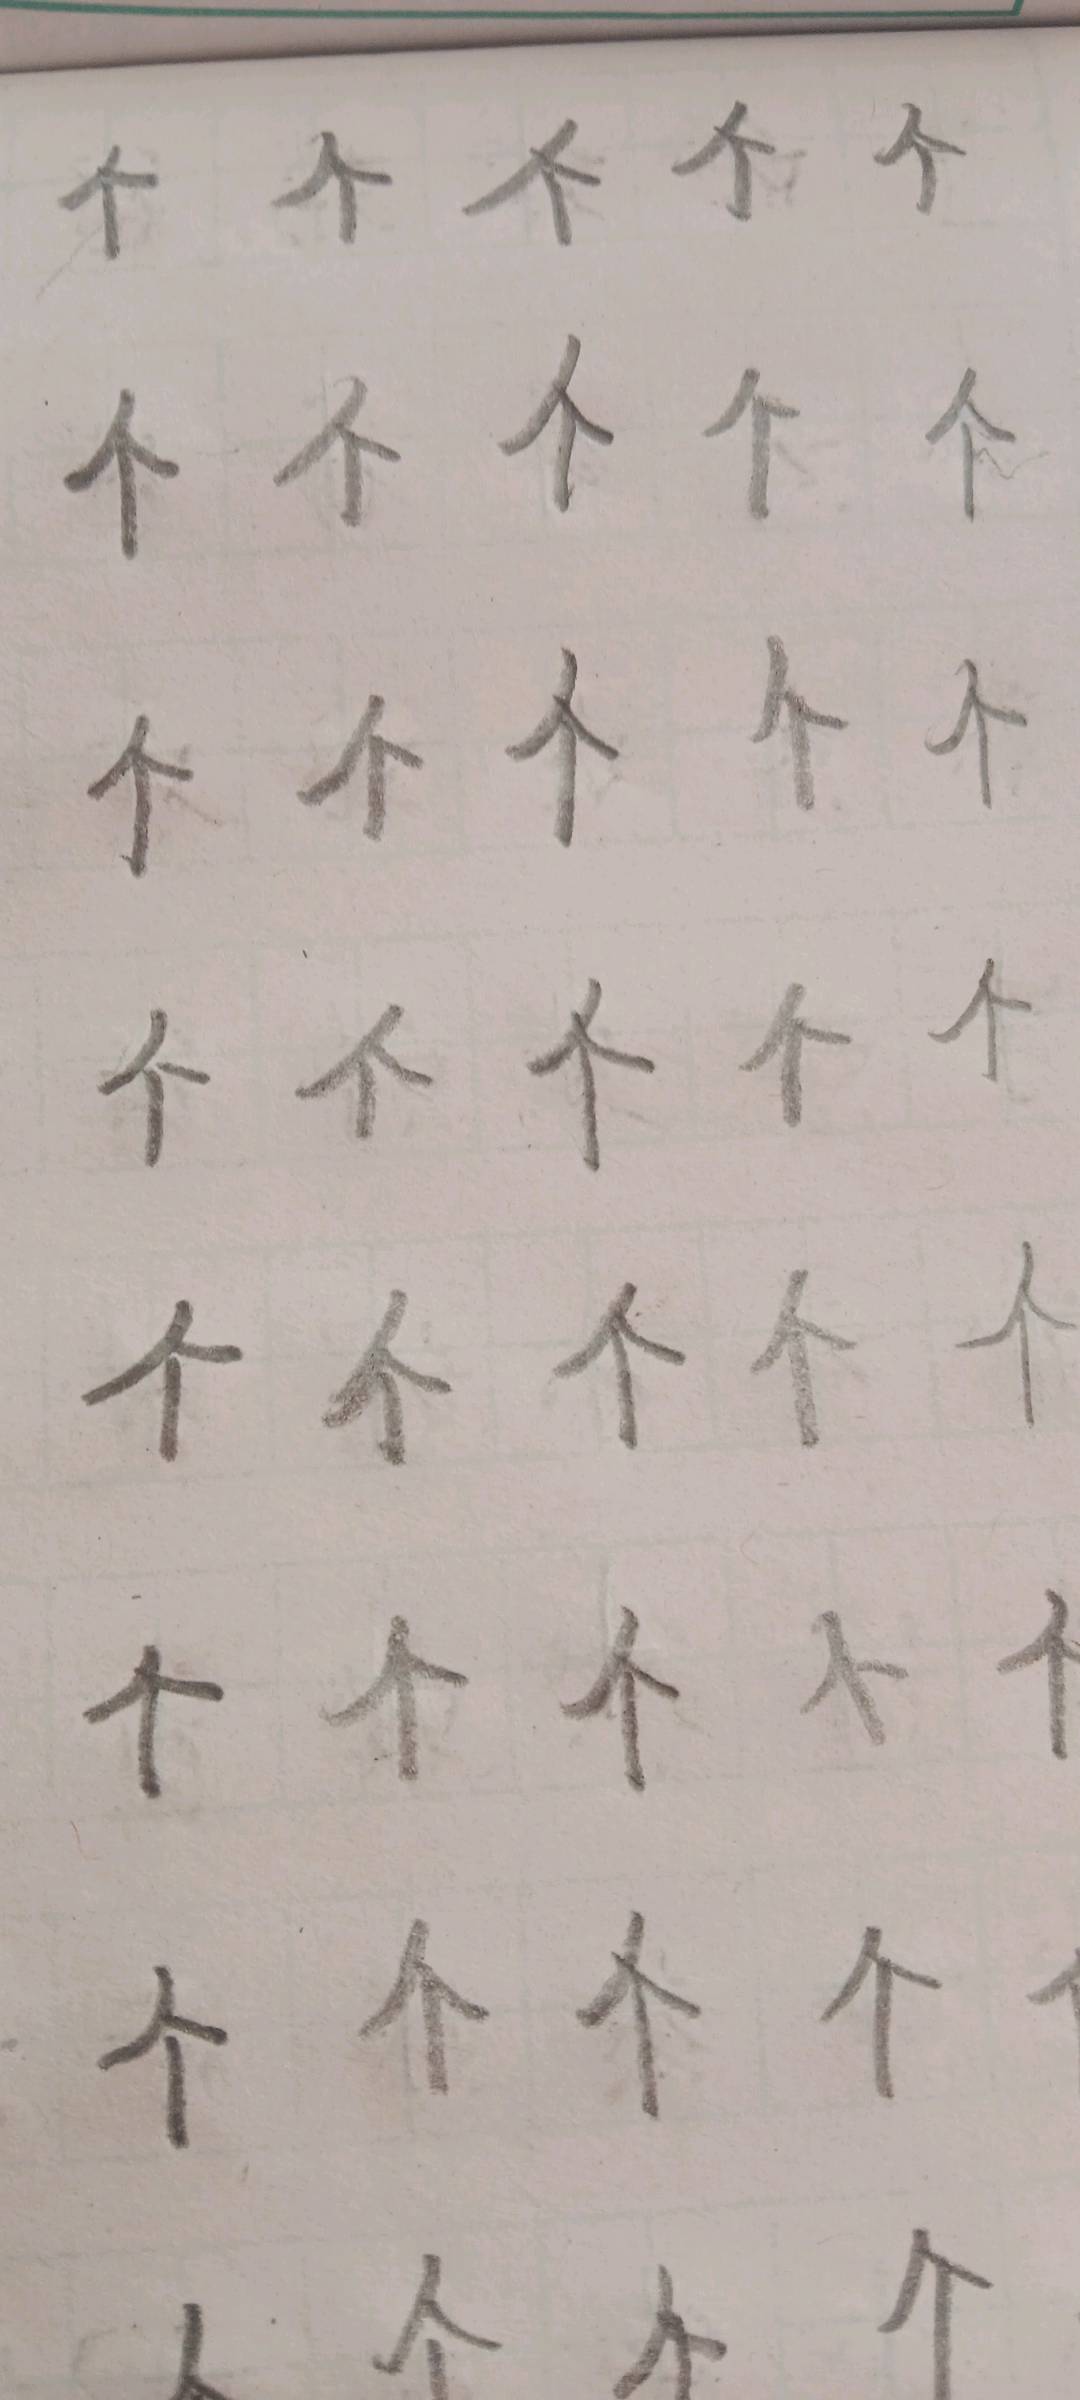 个 个 个 个 个
个 个 个 个 个
个 个 个 个 个
个 个 个 个 个
个 个 个 个 个
个 个 个 个 个
个 个 个 个 个
个 个 个 个